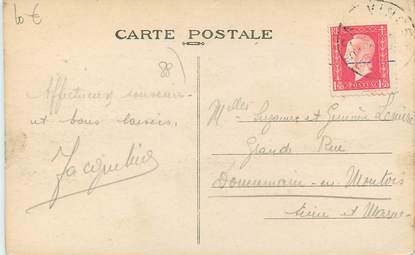 10 €
CARTE POSTALE
88)
Affectueux souvenir
et bons baisers.
Jacqueline
Melles Suzanne et Lemaire
Grande Rue
Donnemarie-en-Montois
Seine et Marne